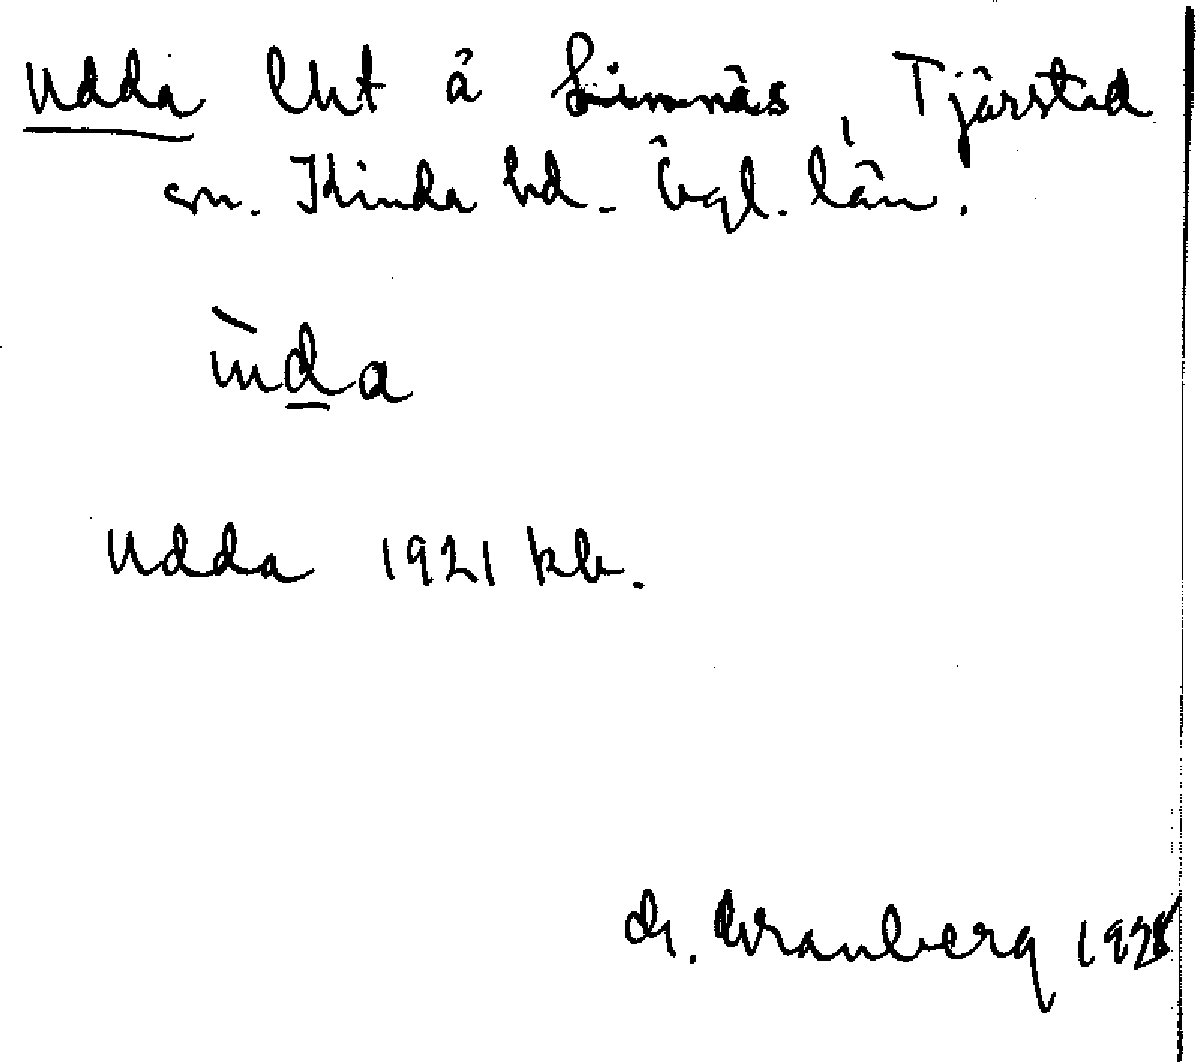 Udda lht å Simnäs, Tjärstad
sn. Kinda hd. Ögl. län.
ùda
Udda 1921 kb.
Wranberg 1928